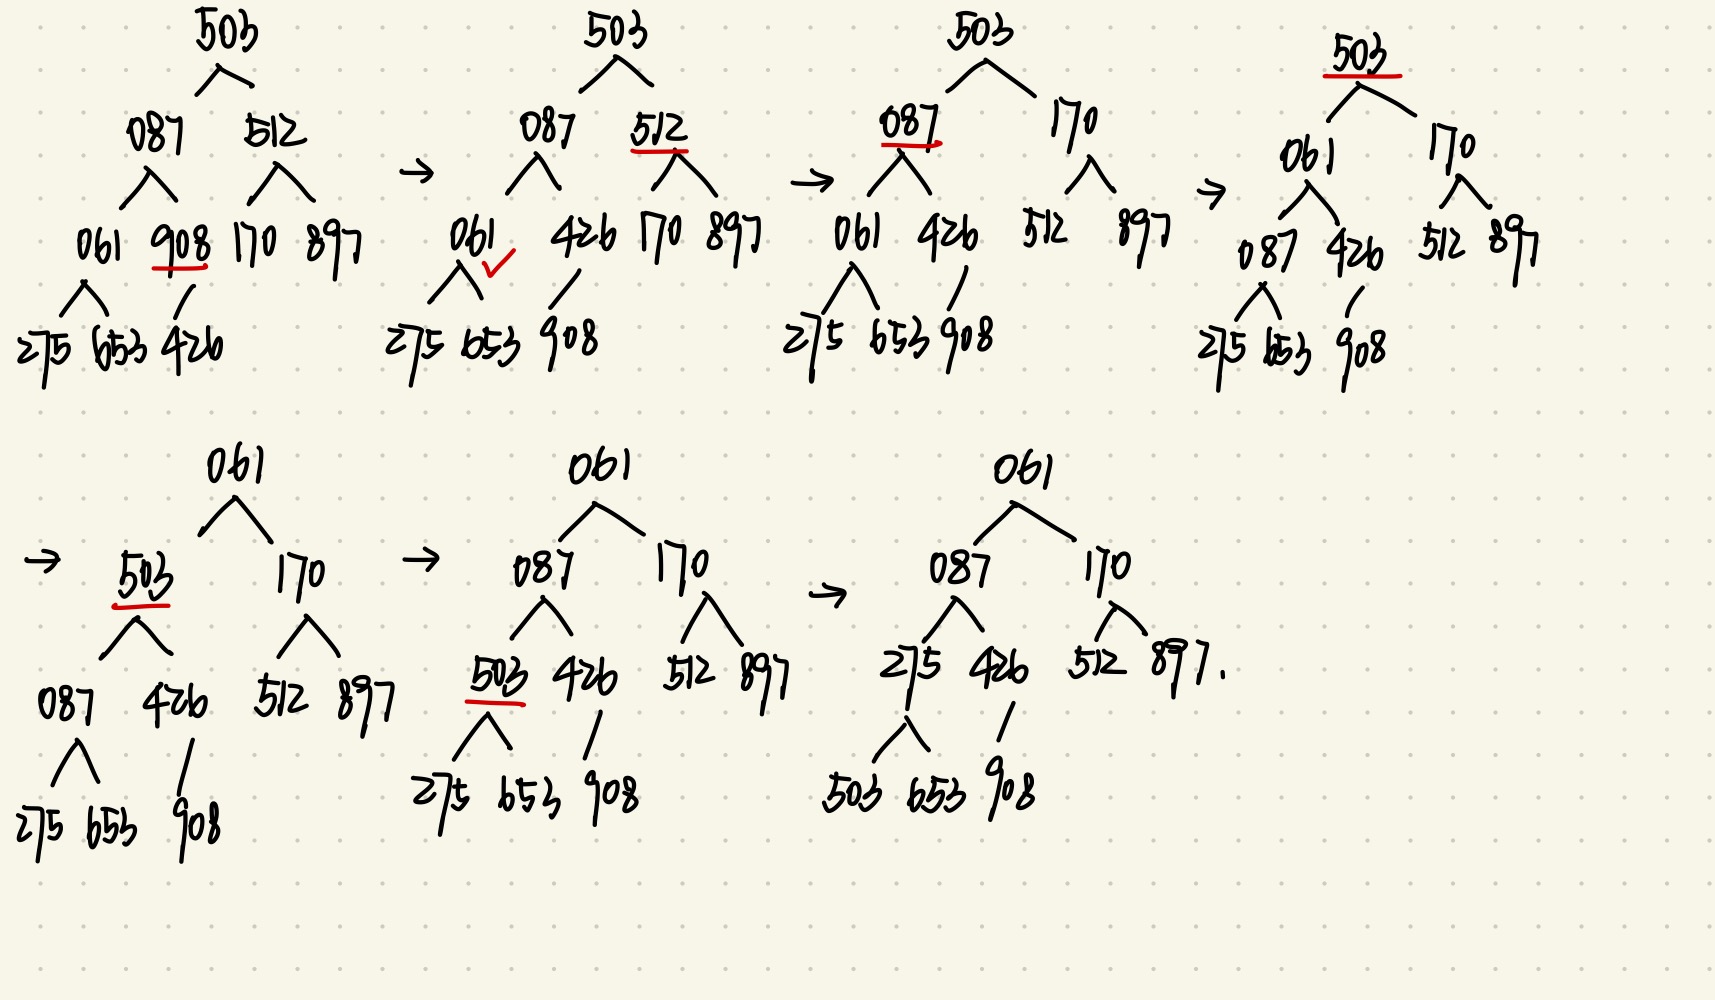 503
087 512
061 908 170 897
275 653 426
→
503
087 512
061 ✓ 426 170 897
275 653 908
→
503
087 170
061 426 512 897
275 653 908
→
503
061 170
087 426 512 897
275 653 908
→
061
503 170
087 426 512 897
275 653 908
→
061
087 170
503 426 512 897
275 653 908
→
061
087 170
275 426 512 897.
503 653 908